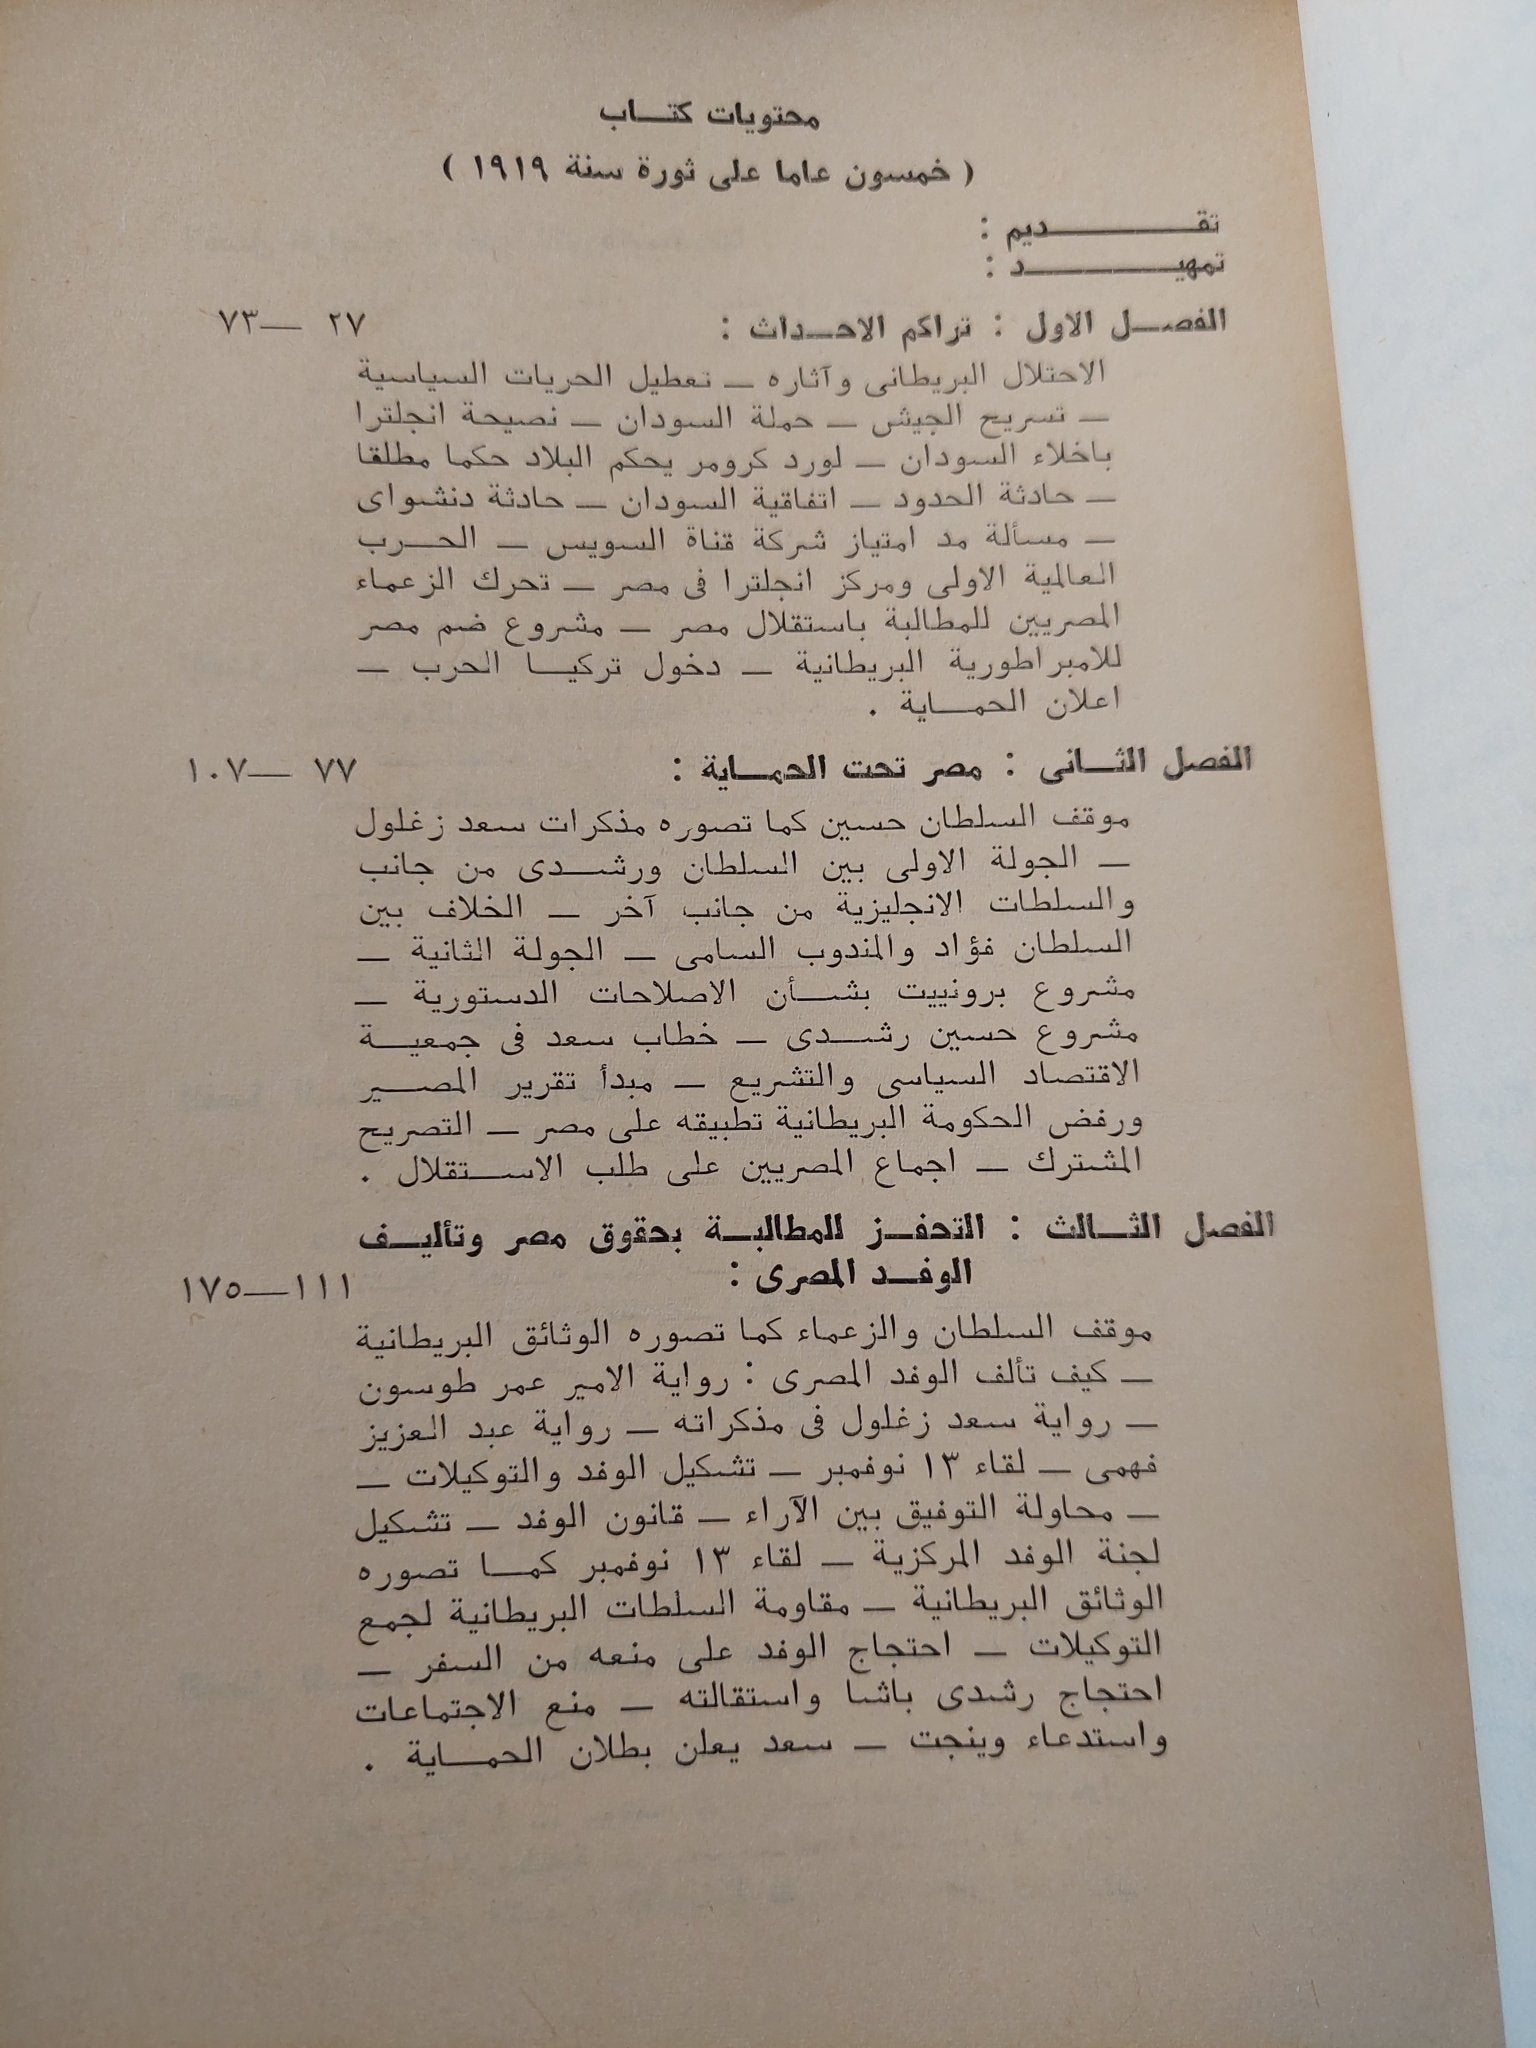 محتويات كتاب
( خمسون عاما على ثورة سنة ١٩١٩ )
تقديم :
تمهيد :
الفصل الاول : تراكم الاحداث : ٢٧ — ٧٣
الاحتلال البريطانى وآثاره — تعطيل الحريات السياسية
— تسريح الجيش — حملة السودان — نصيحة انجلترا
باخلاء السودان — لورد كرومر يحكم البلاد حكما مطلقا
— حادثة الحدود — اتفاقية السودان — حادثة دنشواى
— مسألة مد امتياز شركة قناة السويس — الحرب
العالمية الاولى ومركز انجلترا فى مصر — تحرك الزعماء
المصريين للمطالبة باستقلال مصر — مشروع ضم مصر
للامبراطورية البريطانية — دخول تركيا الحرب —
اعلان الحماية .
الفصل الثانى : مصر تحت الحماية : ٧٧ — ١٠٧
موقف السلطان حسين كما تصوره مذكرات سعد زغلول
— الجولة الاولى بين السلطان ورشدى من جانب
والسلطات الانجليزية من جانب آخر — الخلاف بين
السلطان فؤاد والمندوب السامى — الجولة الثانية —
مشروع برونييت بشأن الاصلاحات الدستورية —
مشروع حسين رشدى — خطاب سعد فى جمعية
الاقتصاد السياسى والتشريع — مبدأ تقرير المصير
ورفض الحكومة البريطانية تطبيقه على مصر — التصريح
المشترك — اجماع المصريين على طلب الاستقلال .
الفصل الثالث : التحفز للمطالبة بحقوق مصر وتأليف
الوفد المصرى : ١١١ — ١٧٥
موقف السلطان والزعماء كما تصوره الوثائق البريطانية
— كيف تألف الوفد المصرى : رواية الامير عمر طوسون
— رواية سعد زغلول فى مذكراته — رواية عبد العزيز
فهمى — لقاء ١٣ نوفمبر — تشكيل الوفد والتوكيلات —
— محاولة التوفيق بين الآراء — قانون الوفد — تشكيل
لجنة الوفد المركزية — لقاء ١٣ نوفمبر كما تصوره
الوثائق البريطانية — مقاومة السلطات البريطانية لجمع
التوكيلات — احتجاج الوفد على منعه من السفر —
احتجاج رشدى باشا واستقالته — منع الاجتماعات
واستدعاء وينجت — سعد يعلن بطلان الحماية .